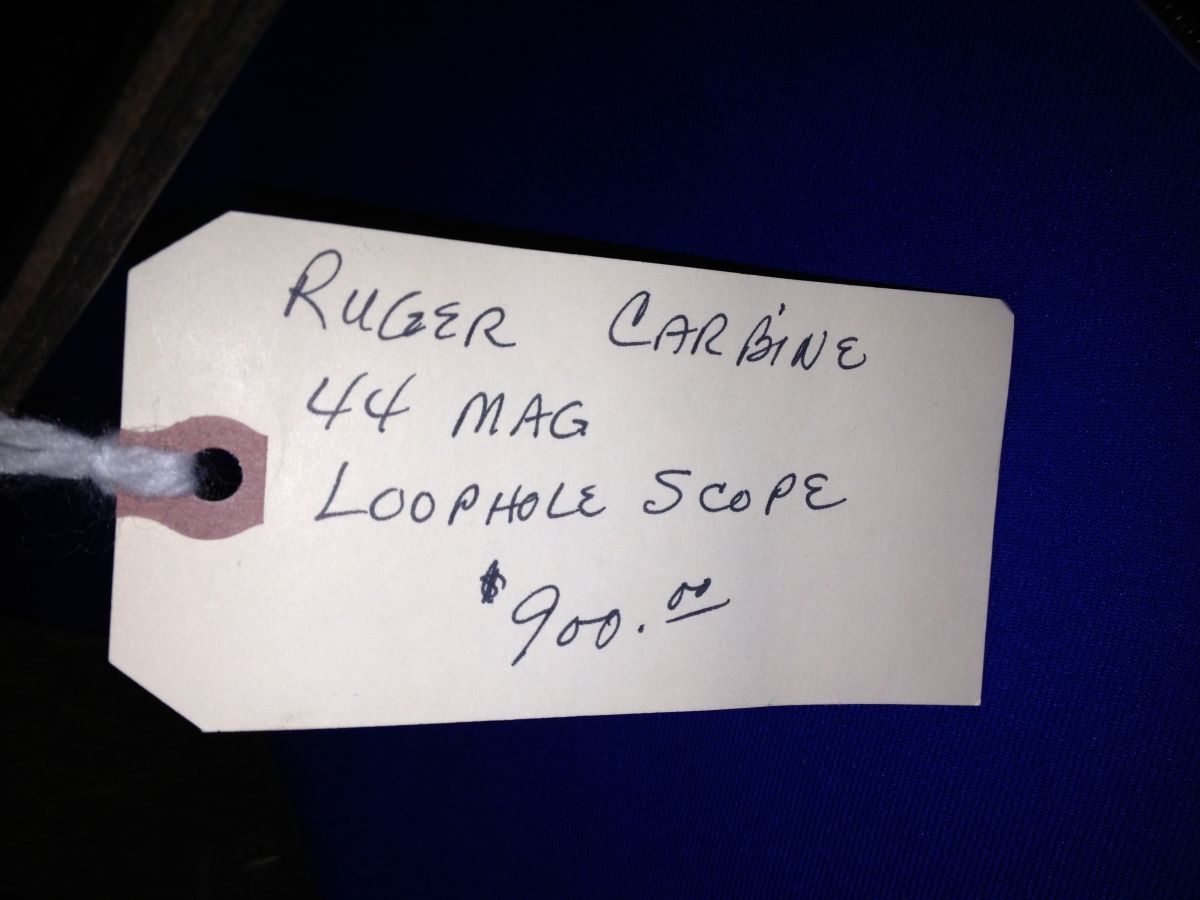 RUGER CARBINE
44 MAG
LOOPHOLE SCOPE
$900.00